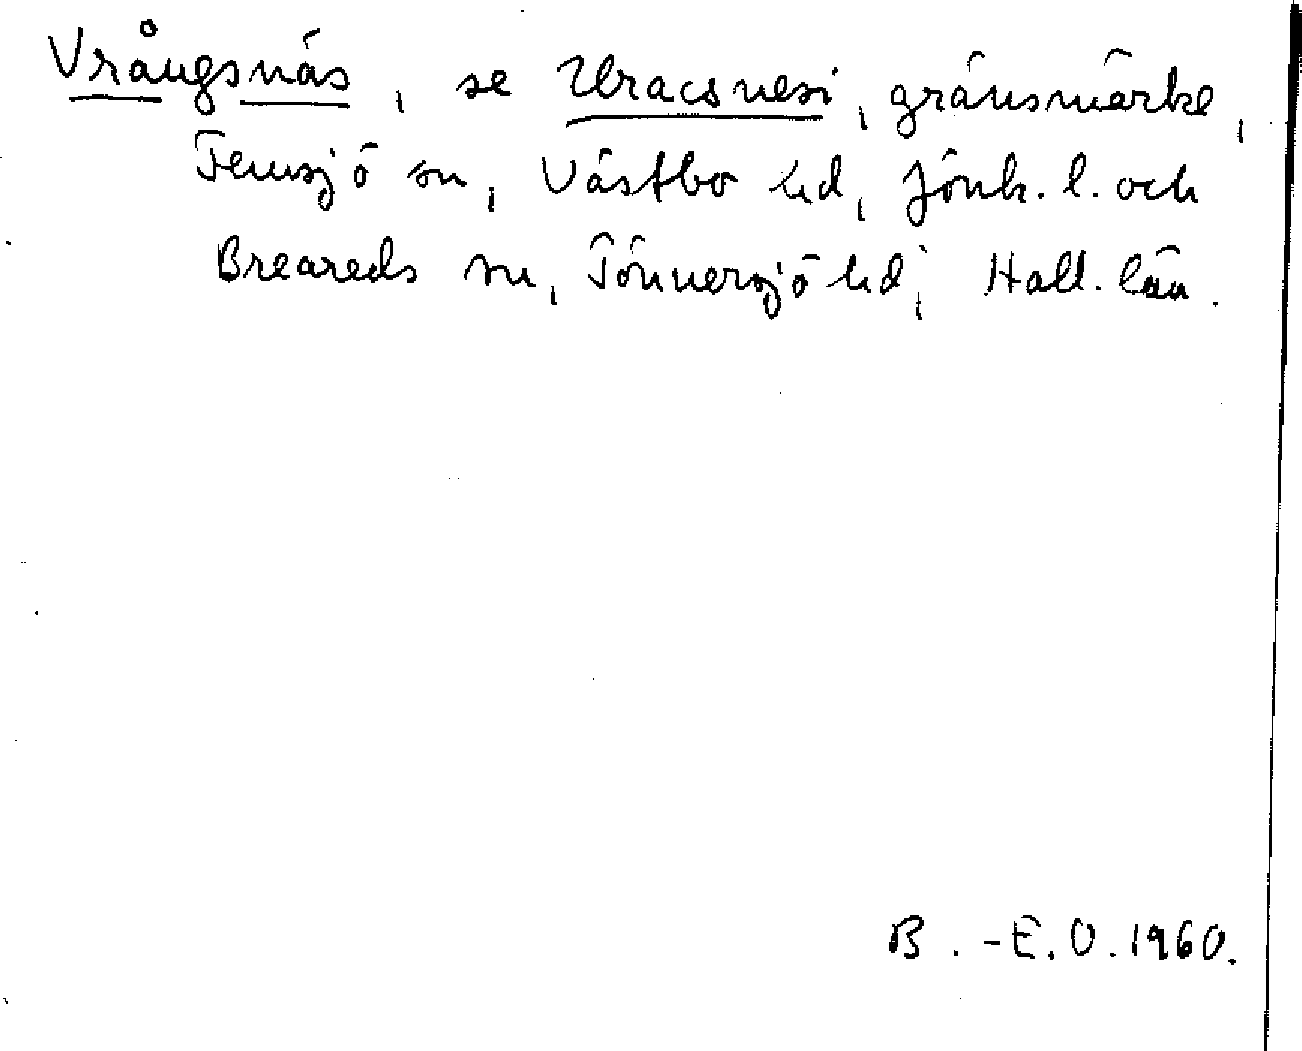 Vrångsnäs, se Uracsnesi, gränsmärke,
Femsjö sn, Västbo hd, Jönk. l. och
Breareds sn, Tönnersjö hd, Hall. län.
B.-E. O. 1960.